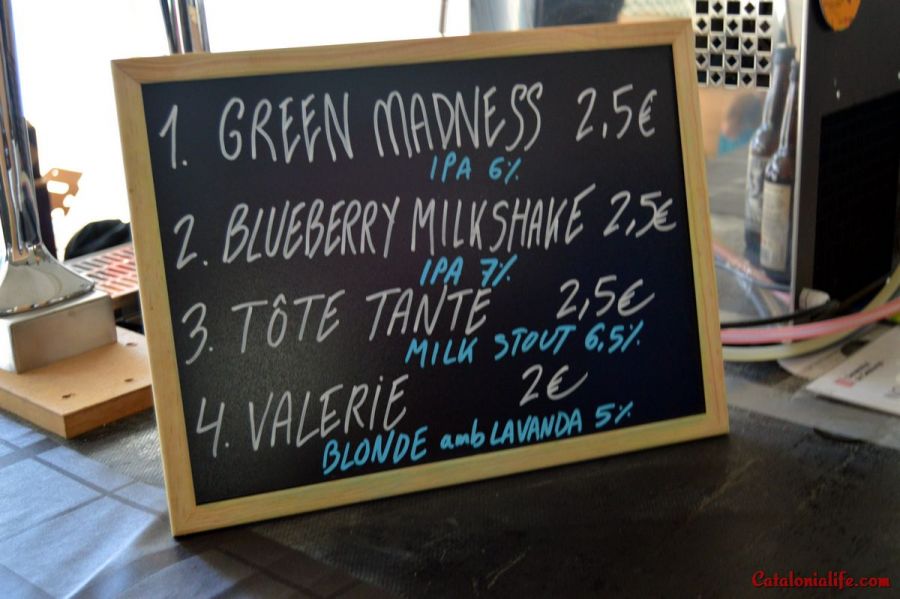 1. GREEN MADNESS 2,5€
IPA 6%
2. BLUEBERRY MILKSHAKE 2,5€
IPA 7%
3. TÔTE TANTE 2,5€
MILK STOUT 6,5%
4. VALERiE 2€
BLONDE amb LAVANDA 5%
Catalonialife.com